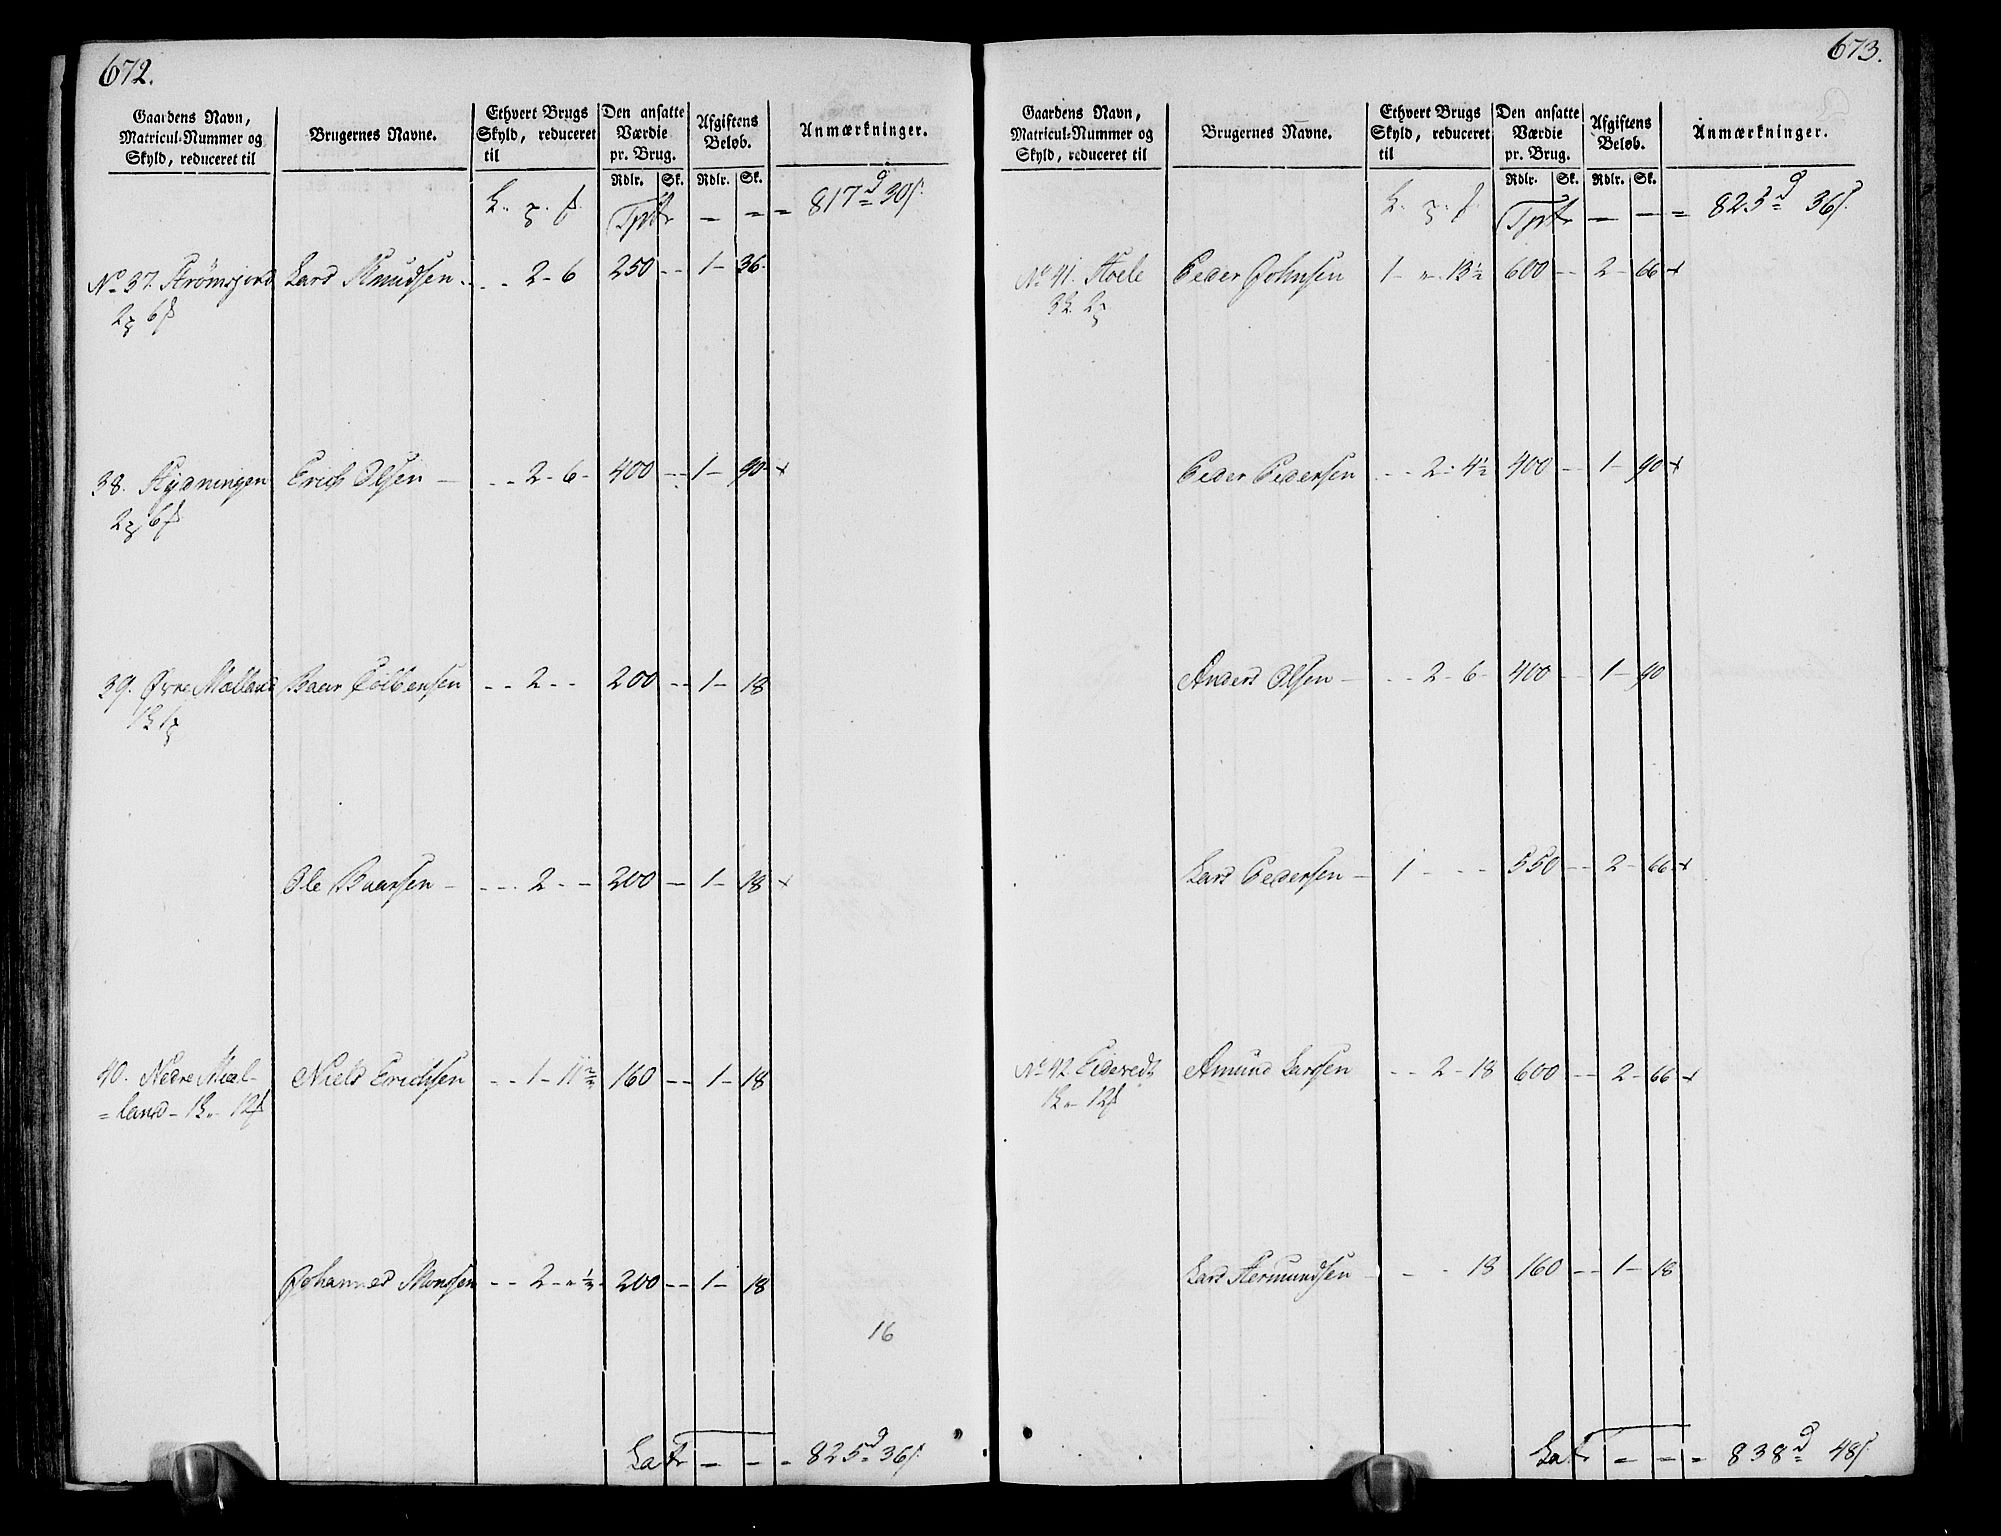 672.
Gaardens Navn,
Matricul-Nummer og
Skyld, reduceret til
Brugernes Navne.
Ethvert Brugs
Skyld, reduceret
til
Den ansatte
Værdie
pr. Brug.
Rdlr. Sk.
Afgiftens
Beløb.
Rdlr. Sk.
Anmærkninger.
Tpt - - - 817 d 30 s.
No 37. Strømsjord Lars Knudsen - - - 2 - 6 250 - - 1 - 36
2 6
38. Hydningen Erich Olsen - - - 2 - 6 - 400 - - 1 - 90 +
2 6
39. Øvre Mælland Baar Colbensen - - 2 - - 200 - - 1 - 18
1 1
Ole Baarsen - - - - 2 - - 200 - - 1 - 18 +
40. Nedre Mæl- Niels Erichsen - - 1 - 11 1/2 160 - - 1 - 18
= land - 1 - 12
Johannes Monsen - - 2 - " 1/2 200 - - 1 - 18
16
Latr - - - 825 d 36 s.
673.
Gaardens Navn,
Matricul-Nummer og
Skyld, reduceret til
Brugernes Navne.
Ethvert Brugs
Skyld, reduceret
til
Den ansatte
Værdie
pr. Brug.
Rdlr. Sk.
Afgiftens
Beløb.
Rdlr. Sk.
Anmærkninger.
Tpt - - = 825 d 36 s.
No 41. Hoele Peder Johnsen 1 - " - 13 1/2 600 - - 2 - 66 +
3 2
Peder Pedersen - - 2 - 4 1/2 400 - - 1 - 90 +
Anders Olsen - - - 2 - 6 - 400 - - 1 - 90
Lars Pedersen - 1 - - - 550 - - 2 - 66 +
No 42 Eidevedt Amund Larsen - - 2 - 18 600 - - 2 - 66 +
1 - 12
Lars Hermundsen - - - 18 160 - - 1 - 18
Latr = - = 838 d 48 s